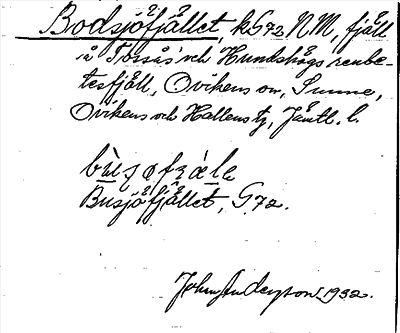 Bodsjöfjället, k G72 NM, fjäll
å Tossås och Hundshögs renbe-
tesfjäll, Ovikens sn, Sunne,
Ovikens och Hallens tg, Jämtl. l.
Busjöfjället, G72.
John Anderson 1932.